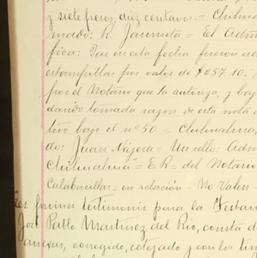 y siete pesos, diez centavos.= Chihua
mado: R. Jaurrieta = El Adm
fica: Que en esta fecha fueron ad
estampillas por valor de $257.10.
por el Notario que la autoriza, y baj
dando tomada razon de esta nota
tivo bajo el nº 50 = Chihuahua,
do: Juan Nájera = Un sello: Adm
Chihuahua = E.R. del Notario
Calabacillas = en relación = No Valen =
Es primer testimonio para la Testam
José Pablo Martínez del Rio, consta d
corregido, cotejado y con los tim